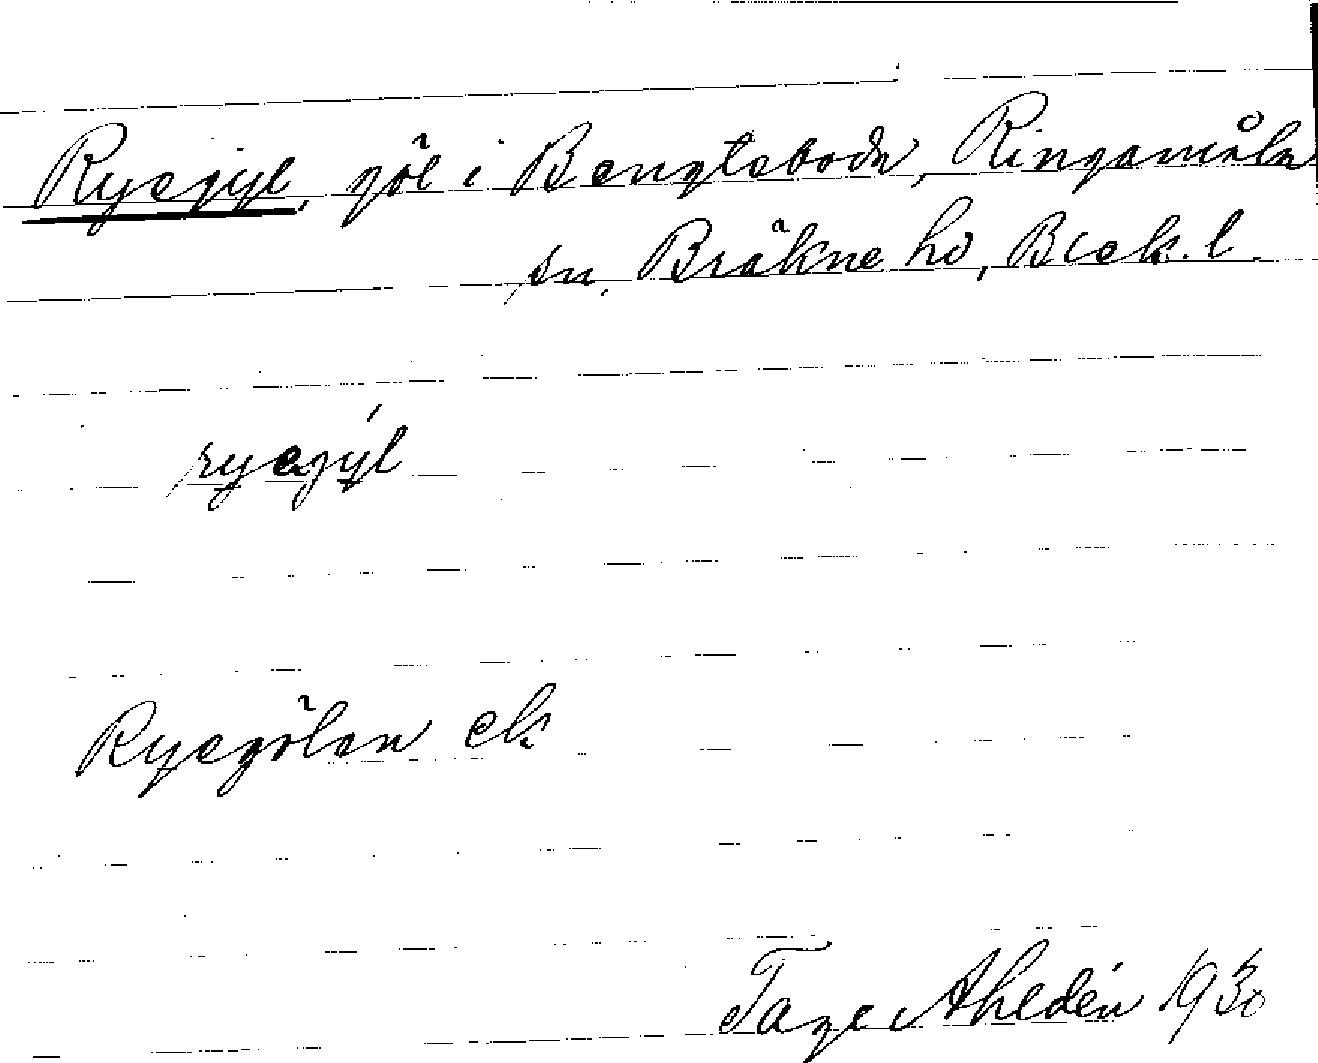 Ryagyl, göl i Bengtaboda, Ringamåla
sn, Bräkne hd, Blek. l.
ryagýl
Ryagölen ek
Tage Ahldén 1930